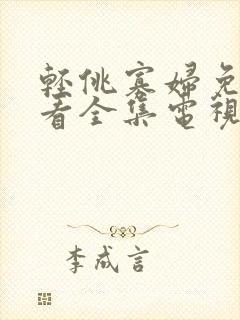 輕佻寡婦免
看全集電視
李成言